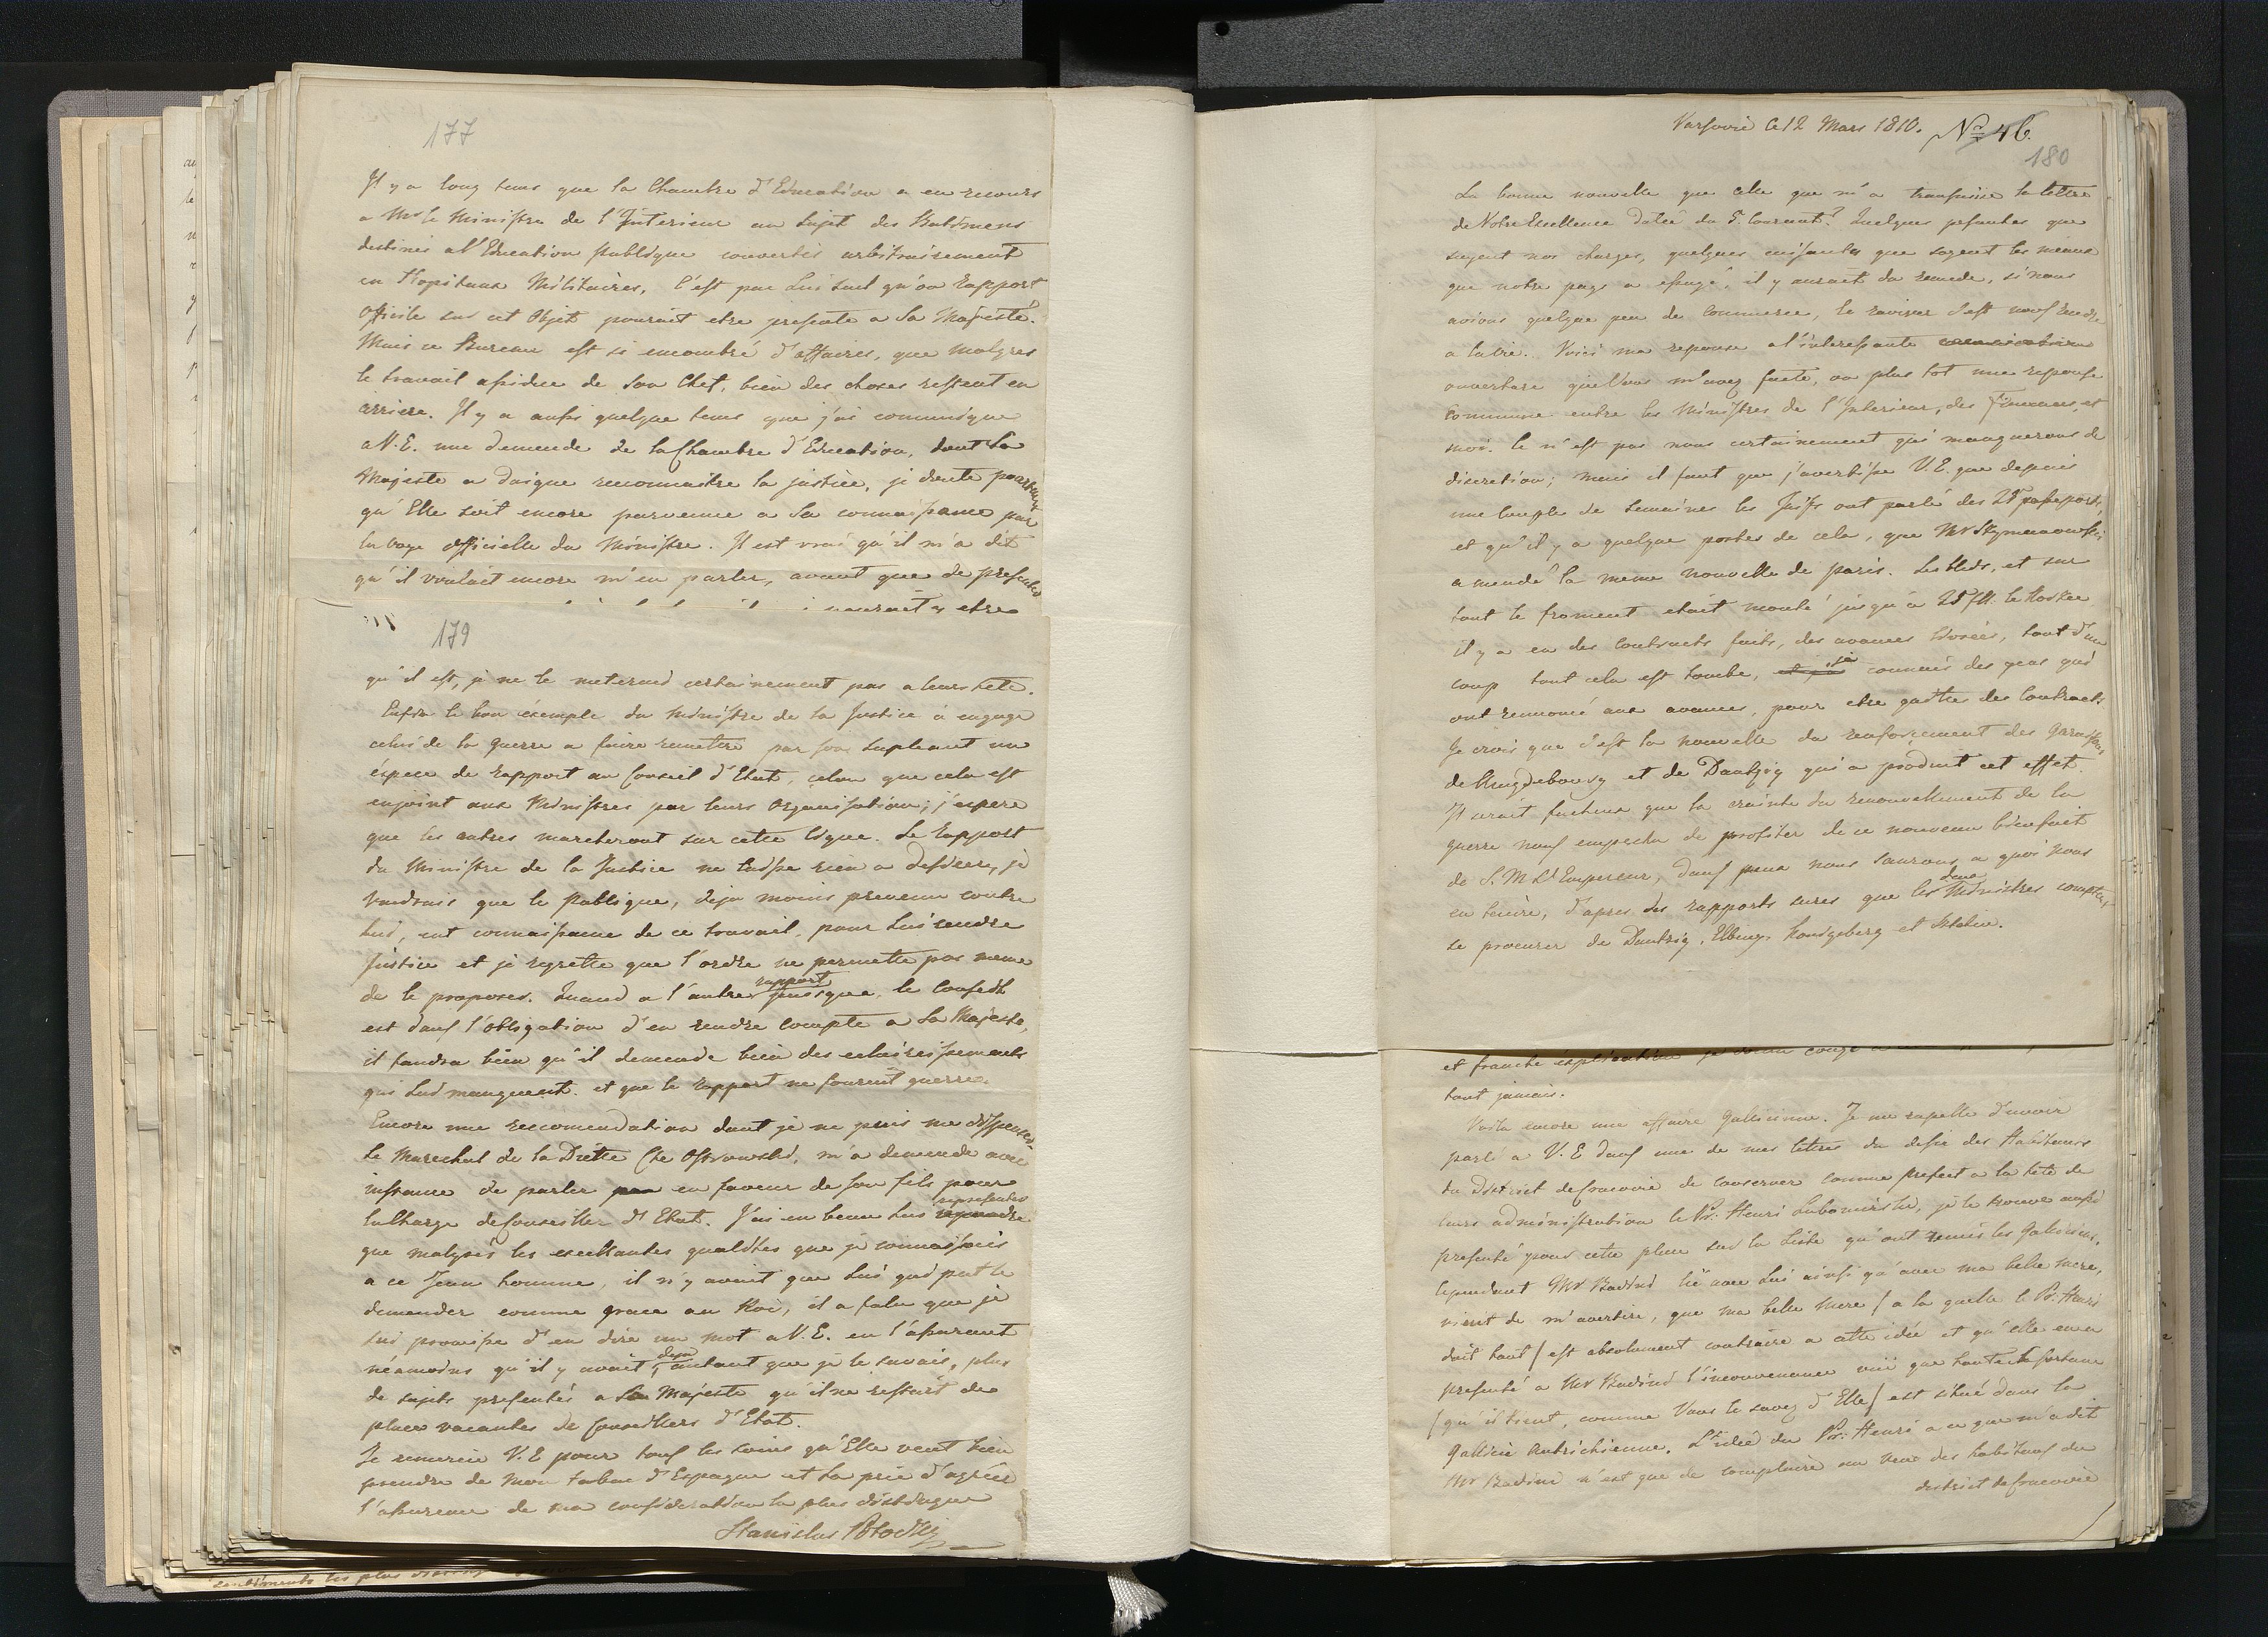 177
Il y a long tems que la Chambre d'Education a eu recours
a Mr le Ministre de l'Interieur au sujet des Batimens
destinés a l'Education publique convertis arbitrairement
en Hopitaux Militaires, c'est par lui seul qu'un rapport
officile sur cet objet pourait etre presenté a Sa Majesté.
Mais ce Bureau est si encombré d'affaires, que malgres
le travail assidue de son Chef, bien des choses restent en
arriere. Il y a aussi quelque tems que j'ai communiqué
a V.E. une demende de la Chambre d'Education, dont Sa
Majeste a daigne reconnaitre la justice, je doute pourtant
qu'Elle soit encore parvenue a Sa connaissance par
la voye officielle du Ministre. Il est vrai qu'il m'a dit
qu'il voulait encore m'en parler, avant que de presenter
179
qu'il est, je ne le meterais certainement pas a leur tete.
Enfin le bon exemple du Ministre de la Justice a engagé
celui de la guerre a faire remetre par son supleant une
éspece de rapport au Conseil d'Etat, selon que cela est
enjoint aux Ministres par leurs Organisation; j'espere
que les autres marcheront sur cette ligne. Le rapport
du Ministre de la Justice ne laisse rien a desirer, je
voudrais que le Publique, deja moins prevenu contre
lui, eut connaissance de ce travail, pour lui rendre
Justice et je regrette que l'ordre ne permette pas meme
de le proposer. Quand a l'autre rapport puisque le Conseil
est dans l'obligation d'en rendre compte a Sa Majesté,
il faudra bien qu'il demende bien des eclaircissements
qui lui manquent et que le rapport ne fournit guerre.
Encore une reccomendation dont je ne puis me dispenser
Le Marechal de la Diette Cte Ostrowski, m'a demende avec
instance de parler en faveur de son fils pour
la Charge de Conseiller d'Etat. J'ai eu beau lui representer
que malgrés les excellantes qualités que je connaissais
a ce Jeun homme, il n'y avait que lui qui put le
demender comme grace au Roi, il a falu que je
lui promisse d'en dire un mot a V.E. en l'assurant
néamoins qu'il y avait deja, autant que je le savais, plus
de sujets presentés a Sa Majesté qu'il ne restait de
places vacantes de Conseillers d'Etat.
Je remercie V.E pour tous les soins qu'Elle veut bien
prendre de mon tabac d'Espagne et la prie d'agréer
l'assurence de ma consideration la plus distingue
Stanislas Potocki
Varsovie ce 12 Mars 1810. No 46.
180
La bonne nouvelle que celle que m'a transmise la lettre
de Votre Excellence datée du 5. Courant! Quelques pesantes que
soyent nos charges, quelques cuisantes que soyent les meaux
que notre pays a essuyé, il y aurait du remede, si nous
avions quelque peu de commerce, le raviver c'est nous rendre
a la vie. Voici ma reponse a l'interessante
ouverture que Vous m'avez faite, ou plus tot une reponse
commune entre les Ministres de l'Interieur, des Finances, et
moi. Ce n'est pas nous certainement qui manquerons de
discretion; mais il faut que j'avertisse V.E. que depuis
une couple de semaines les Juifs ont parlé des 25 passeports,
et qu'il y a quelque postes de cela, que Mr
a mendé la meme nouvelle de paris. Les bleds, et sur
tout le froment etait monté jusqu'a 25 fll. le Korzec
il y a eu des contracts faits, des avances donées, tout d'un
coup tout cela est tombé, j'ai connais des gens qui
ont renoncé aux avances, pour etre quitte des contracts.
Je crois que c'est la nouvelle du renforcement des garnisons
de Magdebourg et de Dantzig qui a produit cet effet.
Il serait facheux que la crainte du renouvellement de la
guerre nous empecha de profiter de ce nouveau bienfait
de S. M. L'Empereur, dans peux nous saurons a quoi nous
en tenire, d'apres des rapports sures que les deux Ministres comptent
se procurer de Dantzig, Elbing, Konigsberg et
et franche explication je
tout jamais.
Voila encore une affaire Galicienne. Je me rapelle d'avoir
parlé a V.E dans une de mes lettres du desir des Habitans
du District de Cracovie de conserver comme prefect a la tete de
leurs administration le Pr: Henri Lubomirski, je le trouve aussi
presenté pour cette place sur la Liste qu'ont remis les Galiciens.
Cependant Mr Badeni lié avec lui ainsi qu'avec ma belle mere,
vient de m'avertire, que ma belle mere / a la quelle le Pr: Henri
doit tout / est absolument contraire a cette idée et qu'elle en a
presenté a Mr Badeni l'inconvenance vüe que toute sa fortune
/ qu'il tient, comme Vous le savez d'Elle / est situé dans la
Galicie Autrichienne. L'idée du Pr: Henri a ce que m'a dit
Mr Badeni n'est que de complaire au veux des habitans du
district de Cracovie